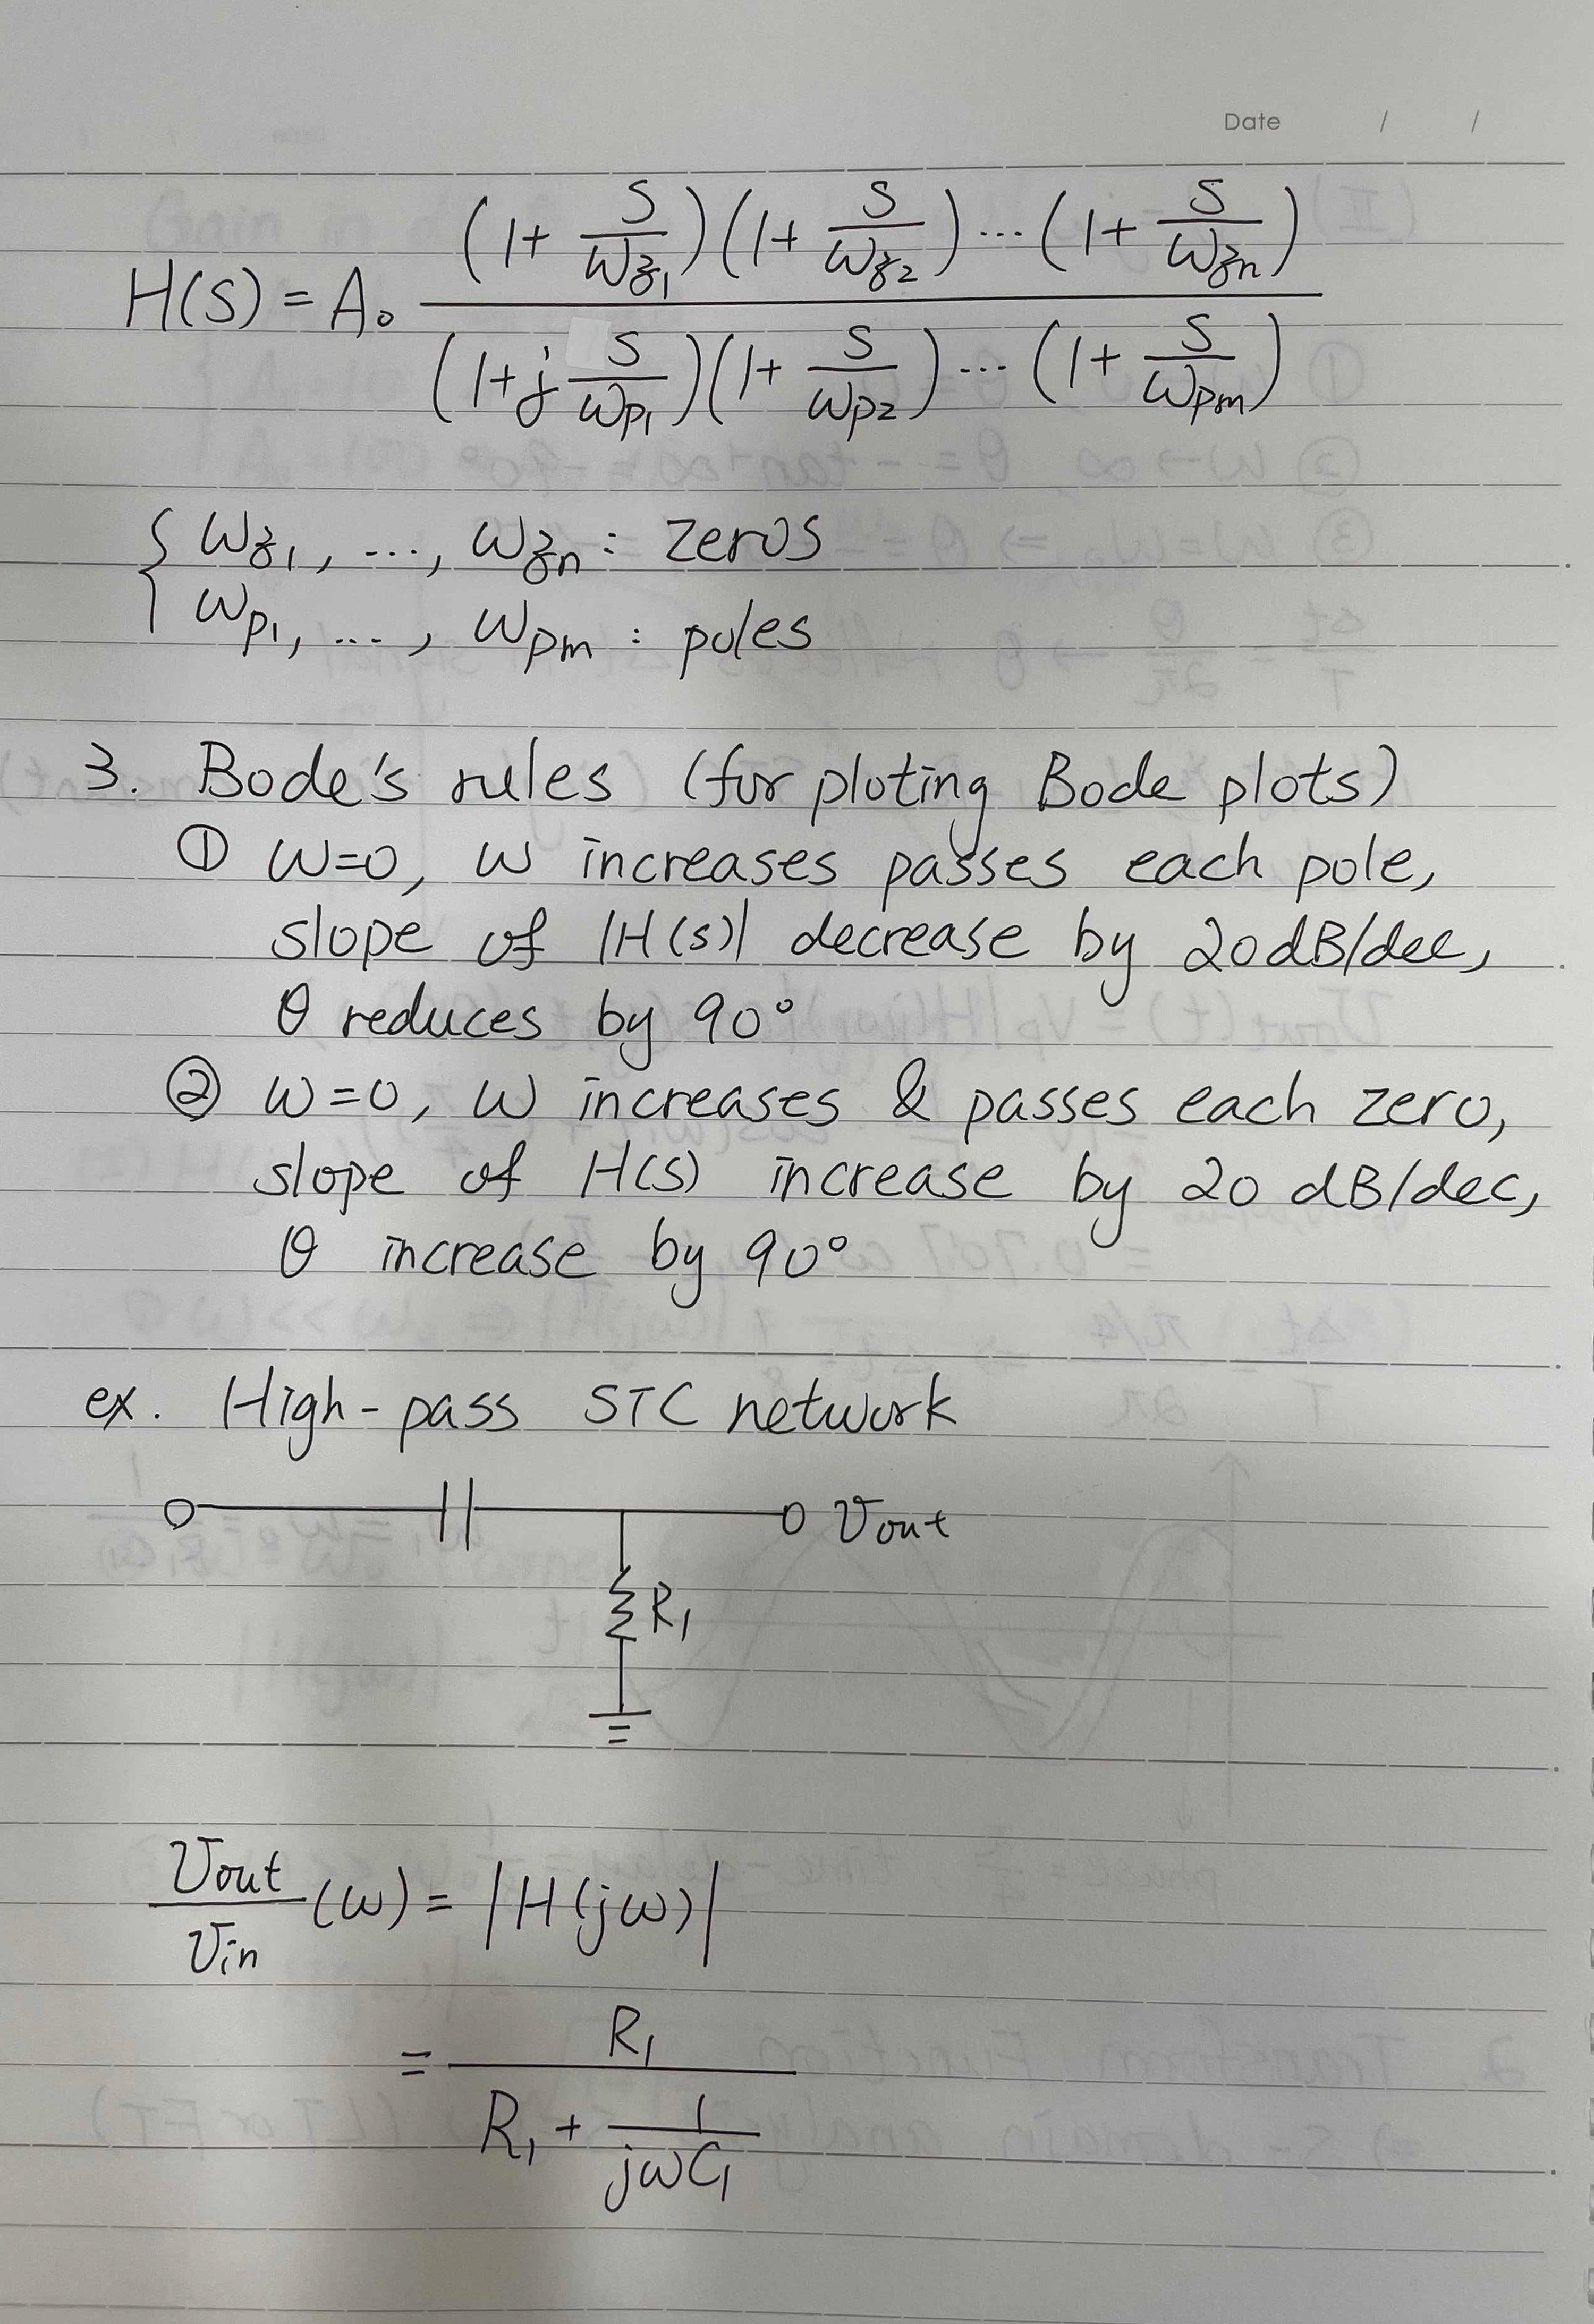 Date / /
H(s) = A₀ (1+ s/ωz₁)(1+ s/ωz₂)...(1+ s/ωzn) / (1+j s/ωp₁)(1+ s/ωp₂)...(1+ s/ωpm)
{ ωz₁, ..., ωzn : zeros
ωp₁, ..., ωpm : poles
3. Bode's rules (for ploting Bode plots)
① ω=0, ω increases passes each pole,
slope of |H(s)| decrease by 20dB/dec,
θ reduces by 90°
② ω=0, ω increases & passes each zero,
slope of H(s) increase by 20 dB/dec,
θ increase by 90°
ex. High-pass STC network
Vout
R₁
Vout/Vin (ω) = |H(jω)|
= R₁ / (R₁ + 1/jωC₁)